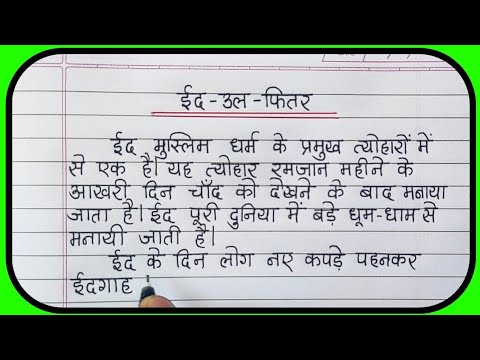 ईद-उल-फितर
ईद मुस्लिम धर्म के प्रमुख त्योहारों में
से एक है। यह त्योहार रमजान महीने के
आखरी दिन चाँद को देखने के बाद मनाया
जाता है। ईद पूरी दुनिया में बड़े धूम-धाम से
मनायी जाती है।
ईद के दिन लोग नए कपड़े पहनकर
ईदगाह